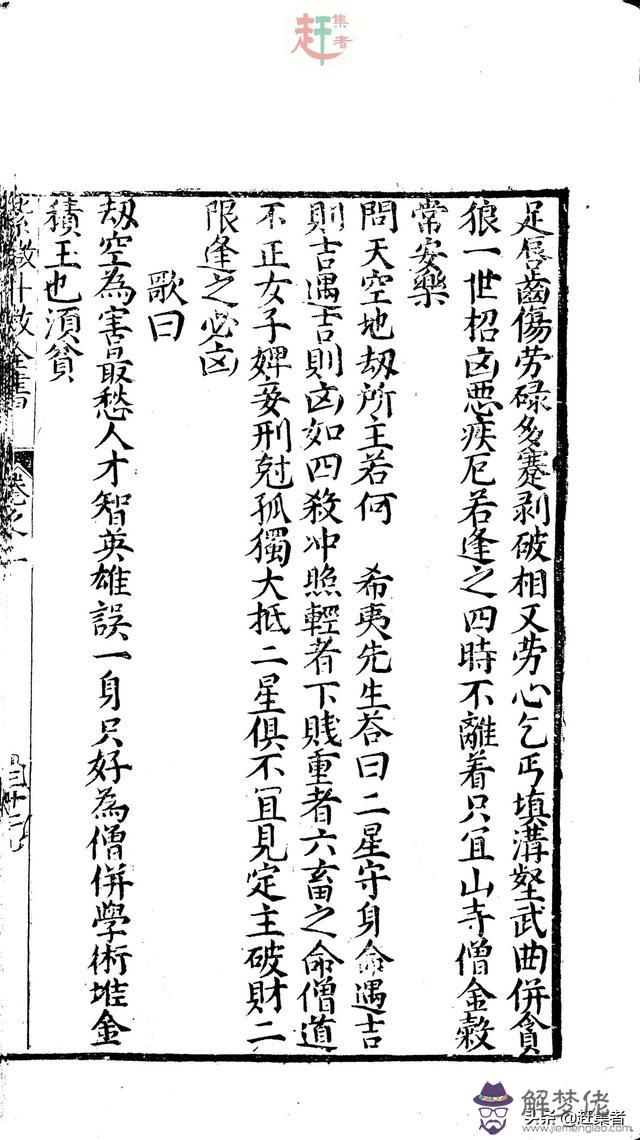 赶集者
足唇齒傷劳碌多蹇剥破相又劳心乞丐填溝壑武曲併貪
狼一世招凶悪疾厄若逢之四時不離着只宜山寺僧金穀
常安樂
問天空地刼所主若何 希夷先生答曰二星守身命遇吉
則吉遇吉則凶如四殺冲照輕者下賎重者六畜之命僧道
不正女子婢妾刑尅孤獨大抵二星俱不宜見定主破財二
限逢之必凶
歌曰
刼空為害最愁人才智英雄誤一身只好為僧併學術堆金
積玉也須貧
紫微斗数全書 卷之一
解梦佬
www.jiemenglao.com
头条@赶集者